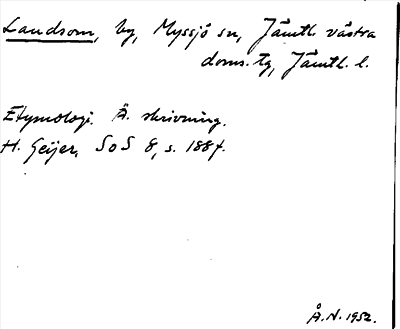 Landsom, by, Myssjö sn, Jämtl. västra
doms. tg, Jämtl. l.
Etymologi. Ä. skrivning.
H. Geijer, SoS 8, s. 188 f.
Å.N. 1952.